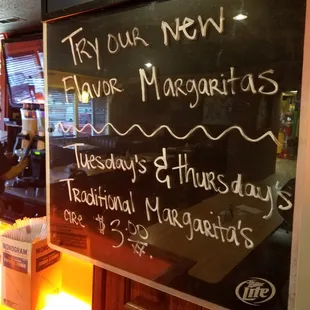 Try our New
Flavor Margaritas
Tuesday's & thursday's
Traditional Margarita's
are $3.00
Lite
MONOGRAM